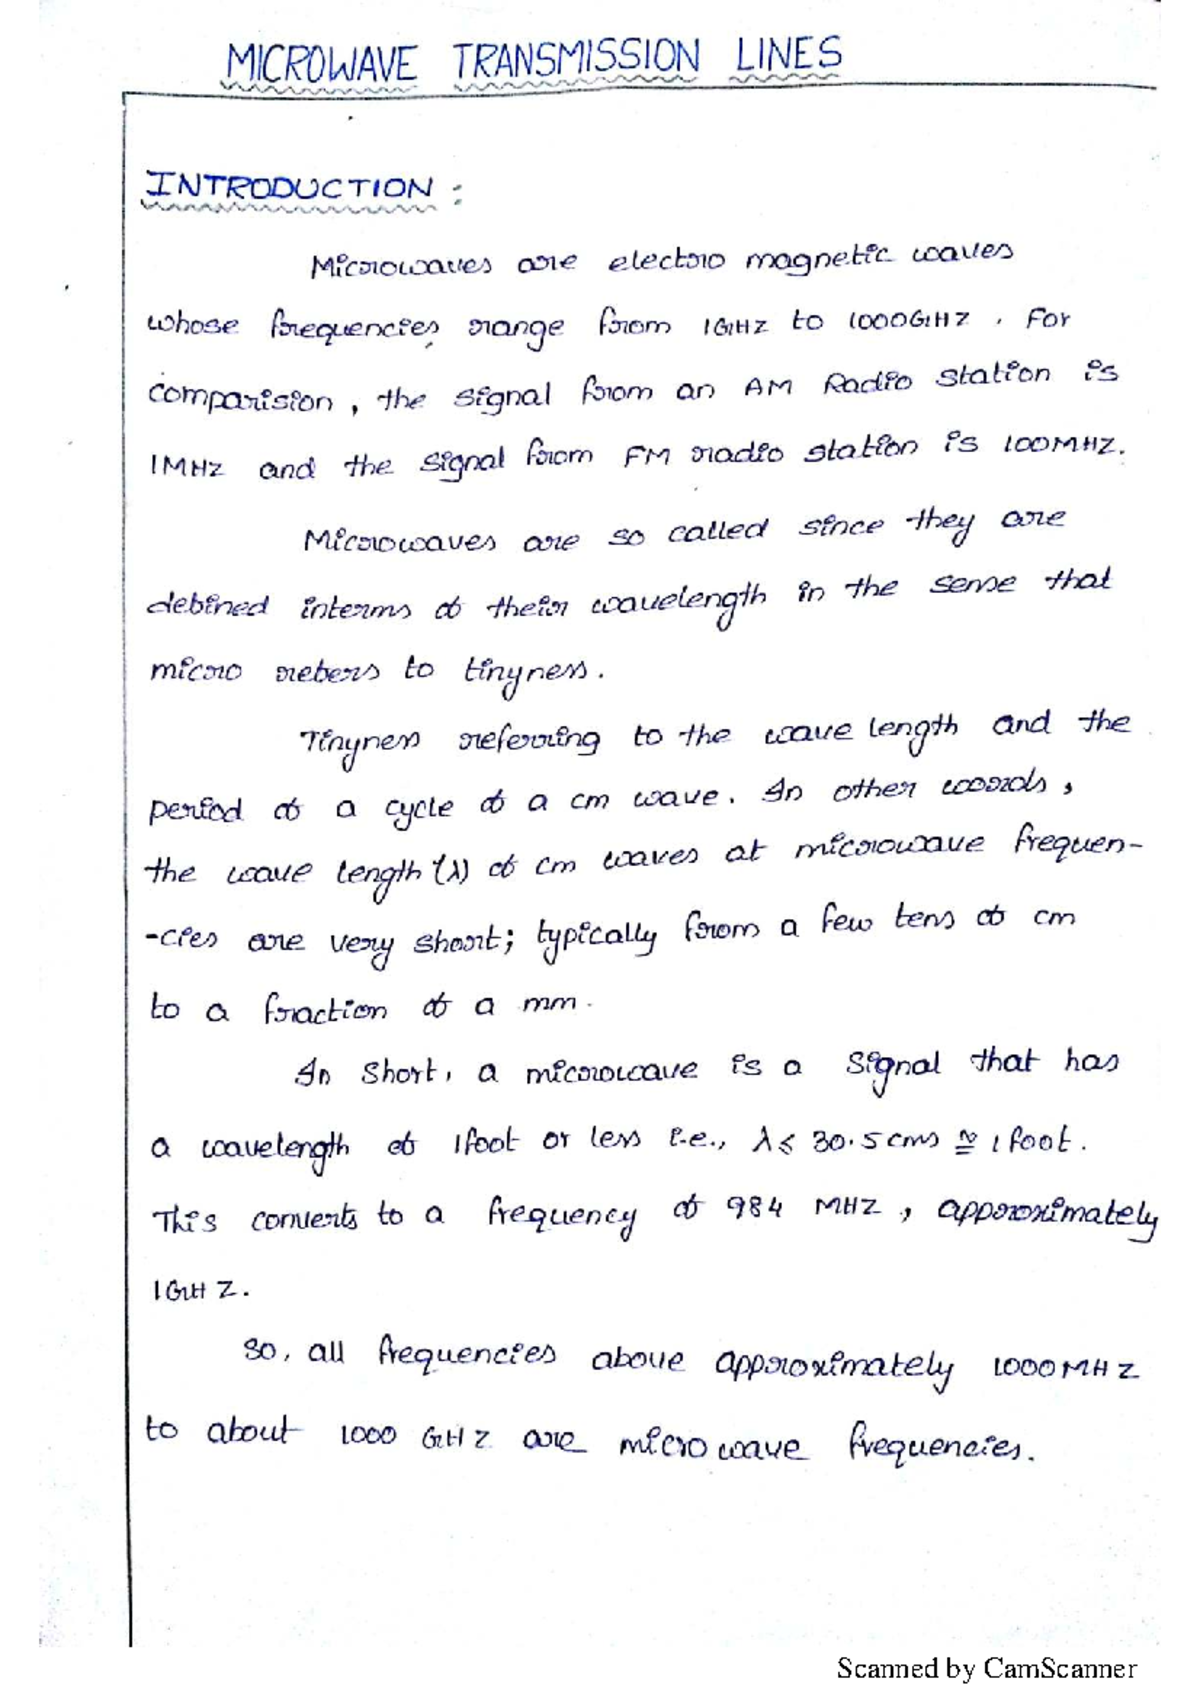 MICROWAVE TRANSMISSION LINES
INTRODUCTION :
Microwaves are electro magnetic waves
whose frequencies range from 1GHZ to 1000GHZ . For
comparision , the signal from an AM Radio station is
1MHZ and the signal from FM radio station is 100MHZ.
Microwaves are so called since they are
defined interms of their wavelength in the sense that
micro refers to tinyness.
Tinyness referring to the wave length and the
period of a cycle of a cm wave. In other words ,
the wave length (λ) of cm waves at microwave frequen-
-cies are very short; typically from a few tens of cm
to a fraction of a mm.
In short, a microwave is a signal that has
a wavelength of 1foot or less i.e., λ ≤ 30.5 cms ≅ 1 foot.
This converts to a frequency of 984 MHZ , approximately
1GHZ.
So, all frequencies above approximately 1000MHZ
to about 1000 GHZ are microwave frequencies.
Scanned by CamScanner